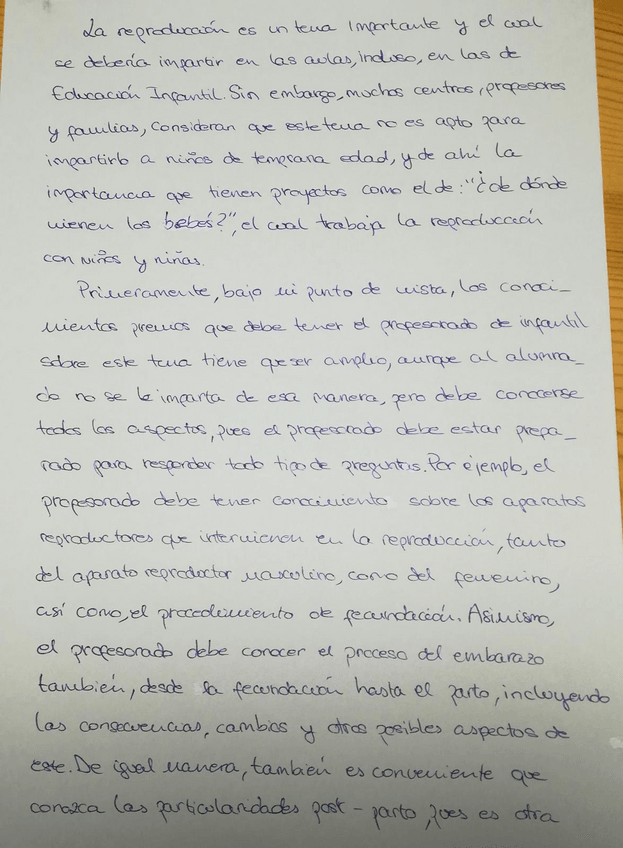 La reproducción es un tema importante y el cual
se debería impartir en las aulas, incluso, en las de
Educación Infantil. Sin embargo, muchos centros, profesores
y familias, consideran que este tema no es apto para
impartirlo a niños de temprana edad, y de ahí la
importancia que tienen proyectos como el de: "¿de dónde
vienen los bebés?", el cual trabaja la reproducción
con niños y niñas.
Primeramente, bajo mi punto de vista, los conoci-
mientos previos que debe tener el profesorado de infantil
sobre este tema tiene que ser amplio, aunque al alumna-
do no se le imparta de esa manera, pero debe conocerse
todos los aspectos, pues el profesorado debe estar prepa-
rado para responder todo tipo de preguntas. Por ejemplo, el
profesorado debe tener conocimiento sobre los aparatos
reproductores que intervienen en la reproducción, tanto
del aparato reproductor masculino, como del femenino,
así como, el procedimiento de fecundación. Asimismo,
el profesorado debe conocer el proceso del embarazo
también, desde la fecundación hasta el parto, incluyendo
las consecuencias, cambios y otros posibles aspectos de
este. De igual manera, también es conveniente que
conozca las particularidades post-parto, pues es otra